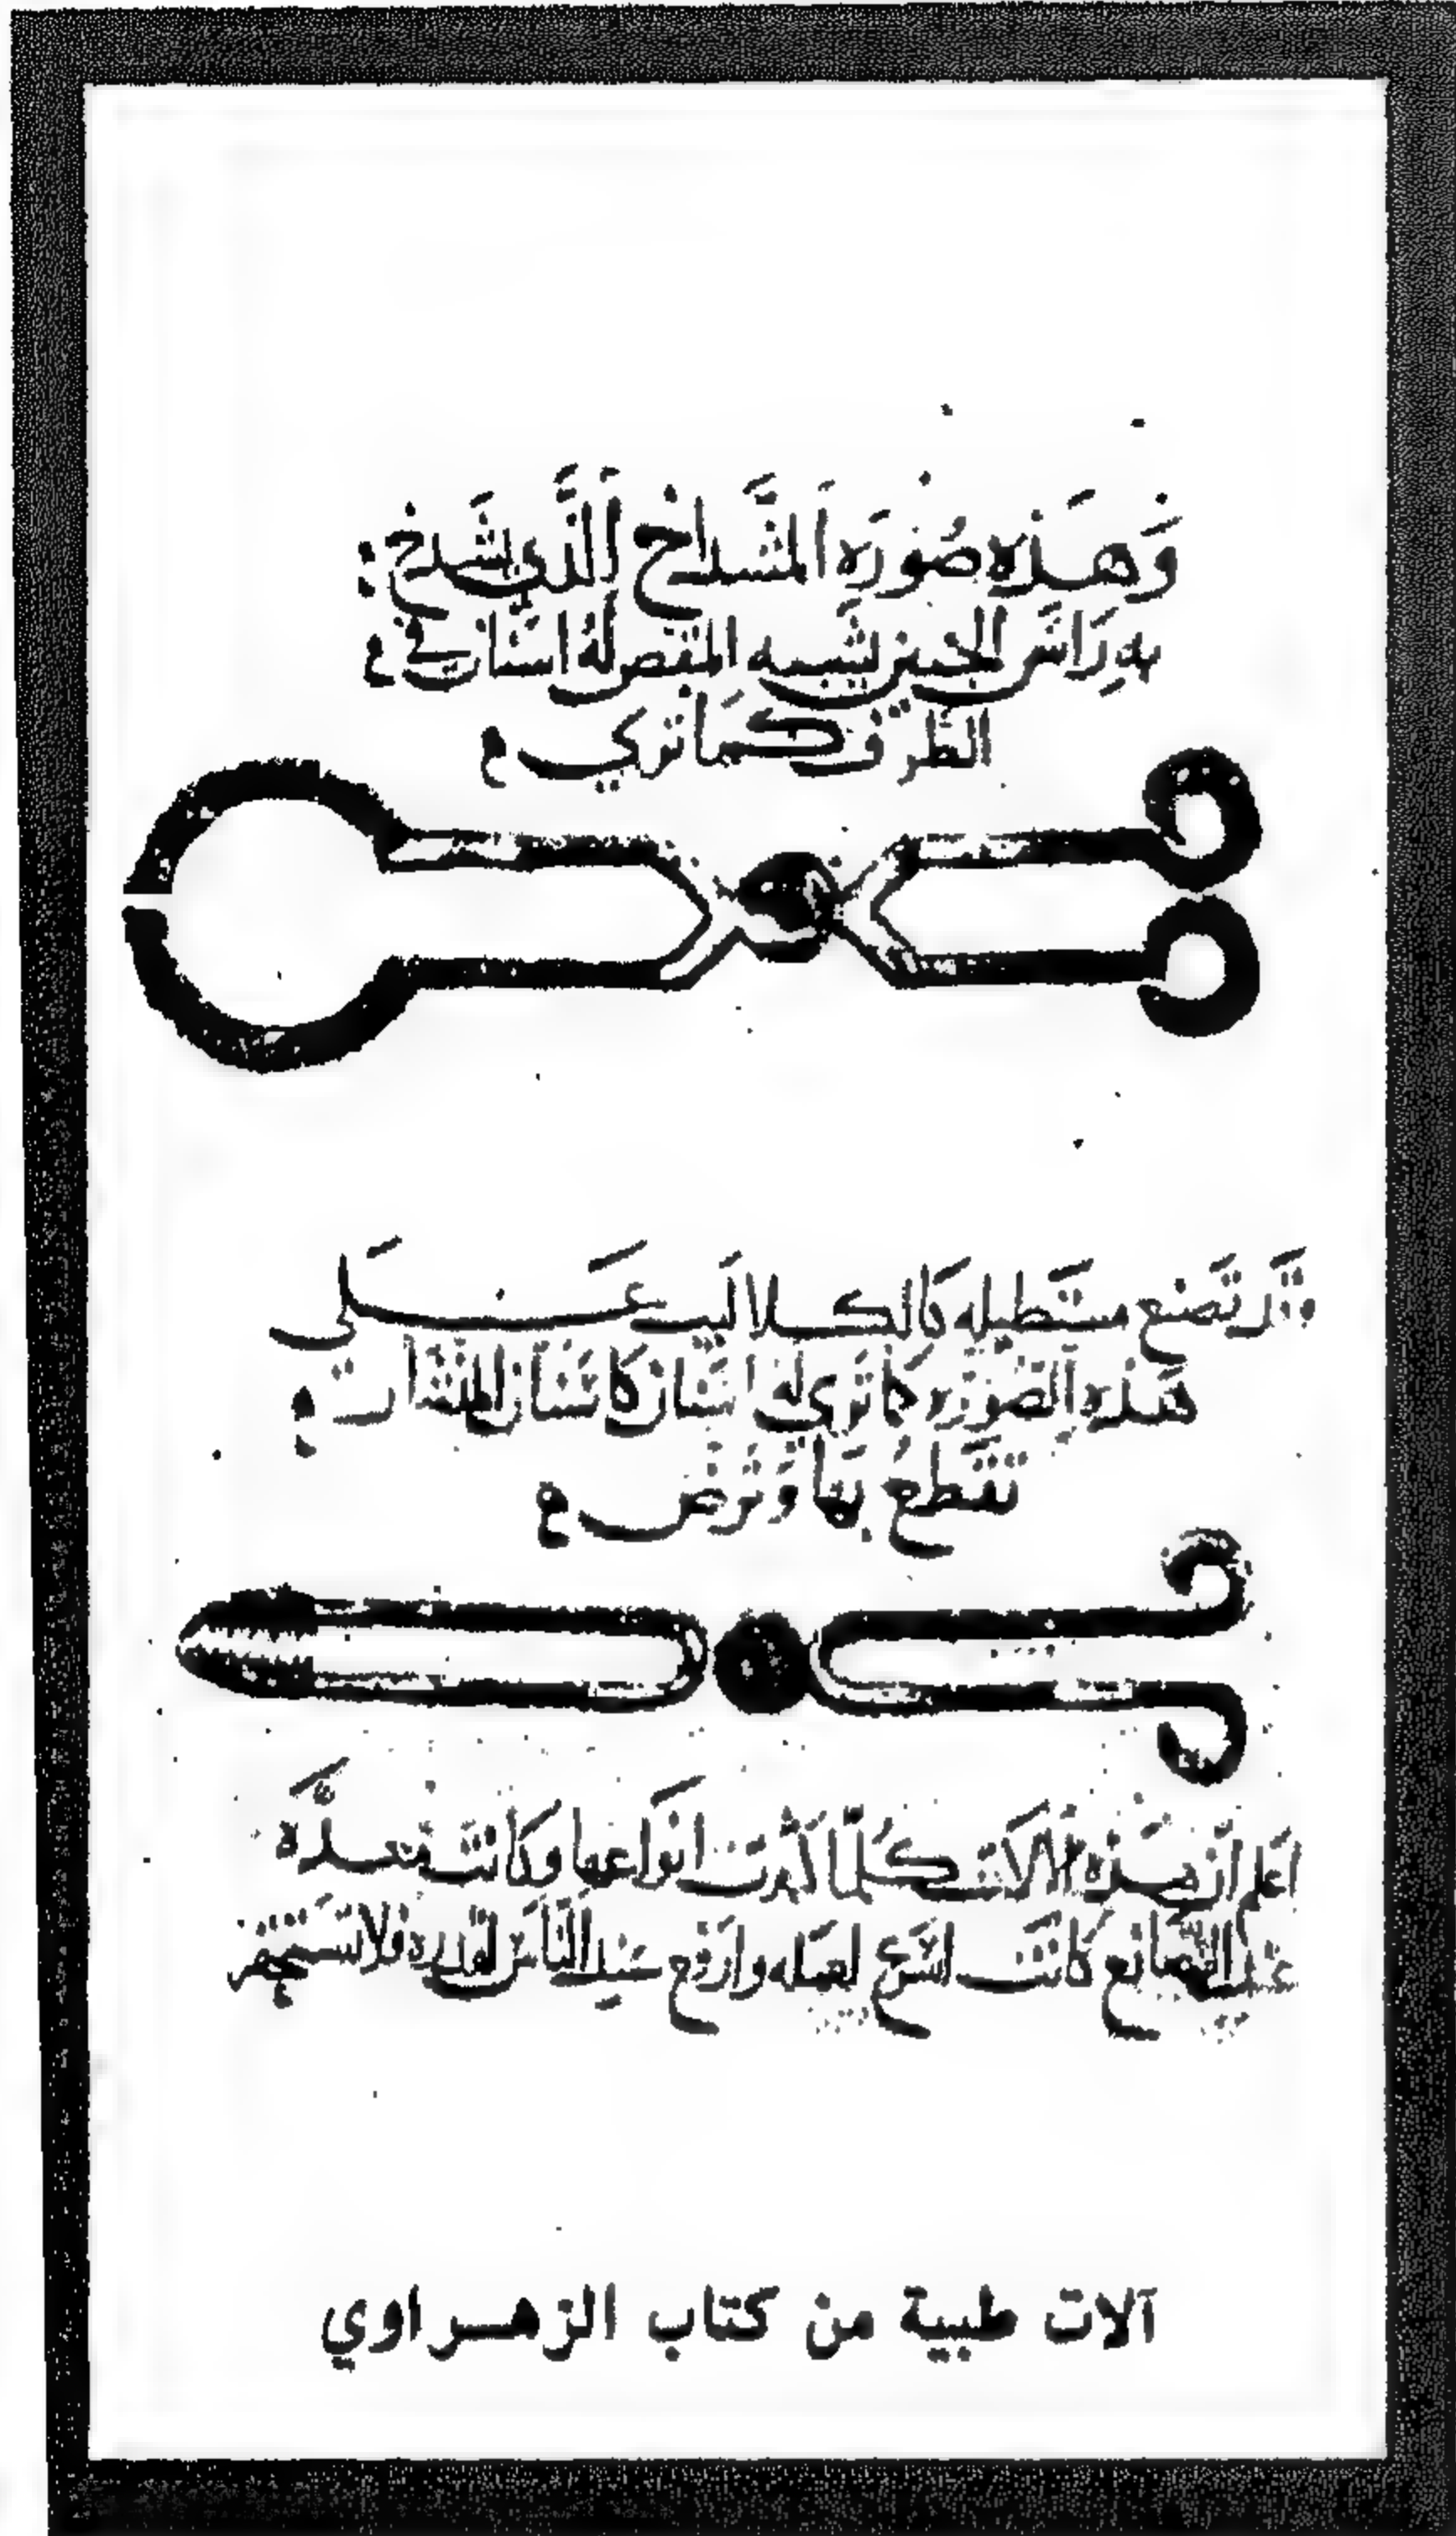 وَهَذِهِ صُورَة المشداخ الَّذي يشدخ :
به رَاس الجنين يشبه المقص له اسنان في
الطرف كما ترى
وقد تصنع مستطيله كالكلاليب عَلى
هَذه الصورَه كما ترى لها اسنان كاسنان المنشار
تقطع بهَا وَترض
اعلم ان هَذه الالات كلما كثرت انواعها وكانت معدَّه
عند الصَانع كانت اسرع لعمله وارفع عند النَاس لقدره فلا تستحقر
آلات طبية من كتاب الزهراوي